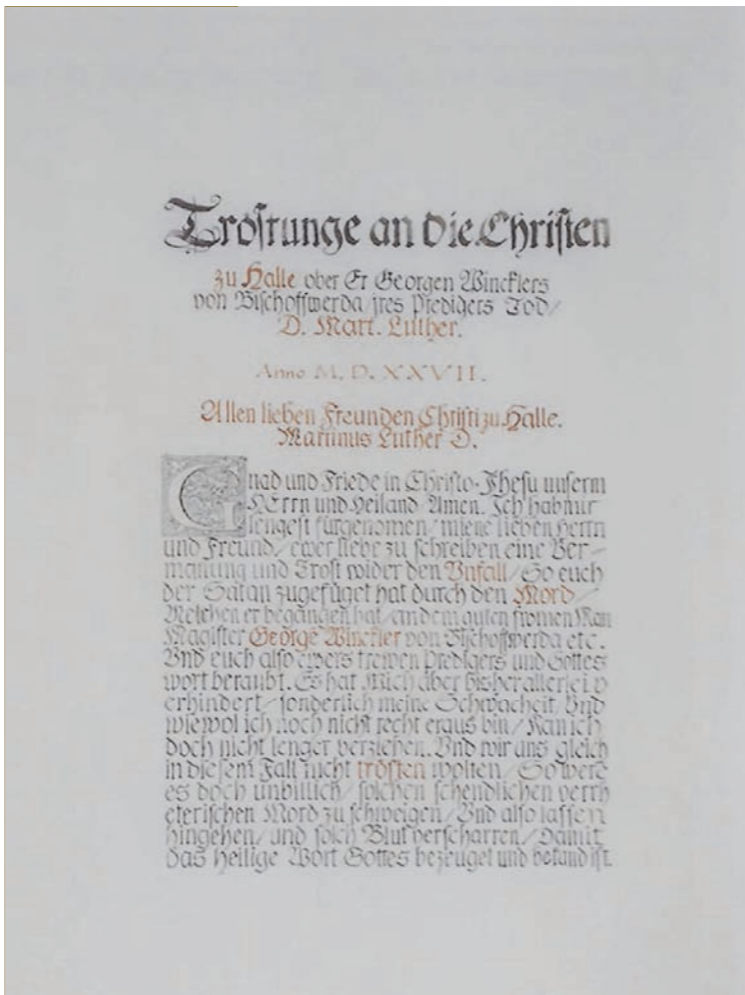 Trostunge an die Christen
zu Halle ober Er Georgen Wincklers
von Bischoffwerda jres Predigers Tod/
D. Mart. Luther.
Anno M. D. XXVII.
Allen lieben Freunden Christi zu Halle.
Martinus Luther D.
Gnad und Friede in Christo Jhesu unserm
HErrn und Heiland Amen. Ich hab mir
lengest fürgenomen/ miene lieben Herrn
und Freund/ ewer liebe zu schreiben eine Ver-
manung und Trost wider den Vnfall/ So euch
der Satan zugefüget hat durch den Mord/
Welchen er begangen hat/ an dem guten fromen Man
Magister George Winckler von Bischoffwerda etc.
Vnd euch also ewers trewen Predigers und Gottes
wort beraubt. Es hat mich aber bisher allerlei v
erhindert/ sonderlich meine Schwacheit Vnd
wiewol ich noch nicht recht eraus bin/ Kan ich
doch nicht lenger verziehen. Vnd wir uns gleich
in diesem Fall nicht trösten wolten/ So were
es doch unbillich/ solchen schendlichen verrh
eterischen Mord zu schweigen/ Vnd also lassen
hingehen/ und solch Blut verscharren/ Damit
das heilige Wort Gottes bezeuget und bekand ist.